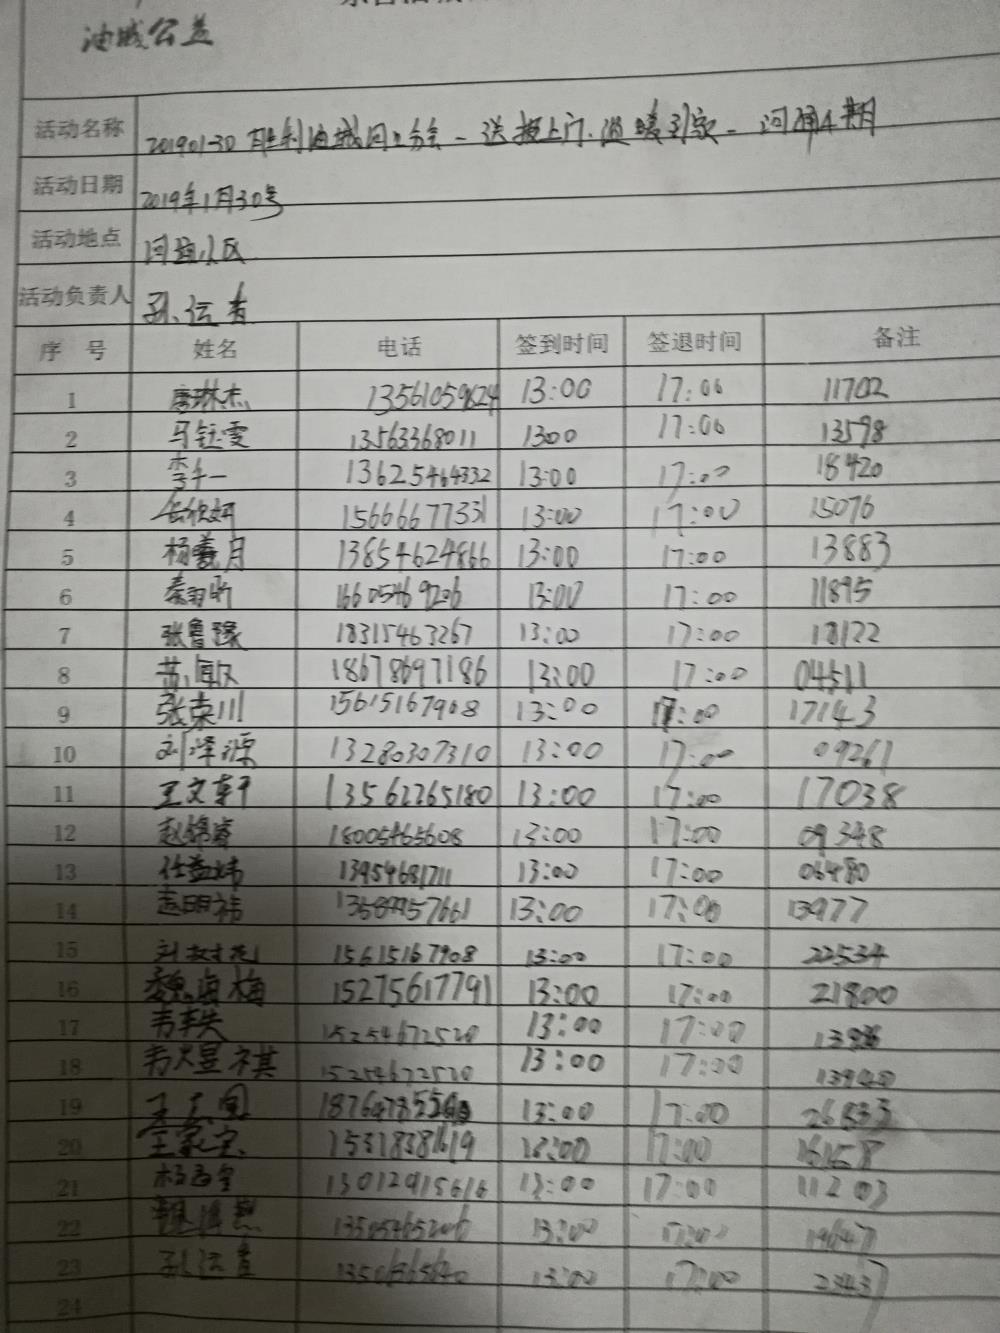 油城公益
活动名称 20190130 胜利油城同工分会-送报上门.温暖到家- 河涌4期
活动日期 2019年1月30号
活动地点 小区
活动负责人 孙运香
序 号 姓名 电话 签到时间 签退时间 备注
1 唐琳杰 13561059624 13:00 17:00 11702
2 马钰雯 13563368011 1300 17:00 13598
3 李一 13625464332 13:00 17:00 18420
4 15666677331 13:00 17:00 15076
5 杨月 13854624866 13:00 17:00 13883
6 秦羽昕 16605469206 13:00 17:00 11895
7 张鲁豫 18315463267 13:00 17:00 18122
8 苏海汉 18678697186 13:00 17:00 04511
9 张荣川 15615167908 13:00 17:00 17143
10 刘泽源 13280307310 13:00 17:00 09261
11 王文轩 13562265180 13:00 17:00 17038
12 赵锦睿 18005465608 13:00 17:00 09348
13 任益炜 13954681711 13:00 17:00 06480
14 赵明祎 13:00 17:00 13977
15 刘 15615167908 13:00 17:00 22534
16 魏海梅 15275617791 13:00 17:00 21800
17 韦 15254672520 13:00 17:00
18 韦 祺 15254672520 13:00 17:00 13940
19 王 13:00 17:00 26833
20 王家宝 13:00 17:00 16158
21 13012915616 13:00 17:00 11203
22 13505465206 13:00 17:00 19647
23 孙运香 13:00 17:00 23437
24